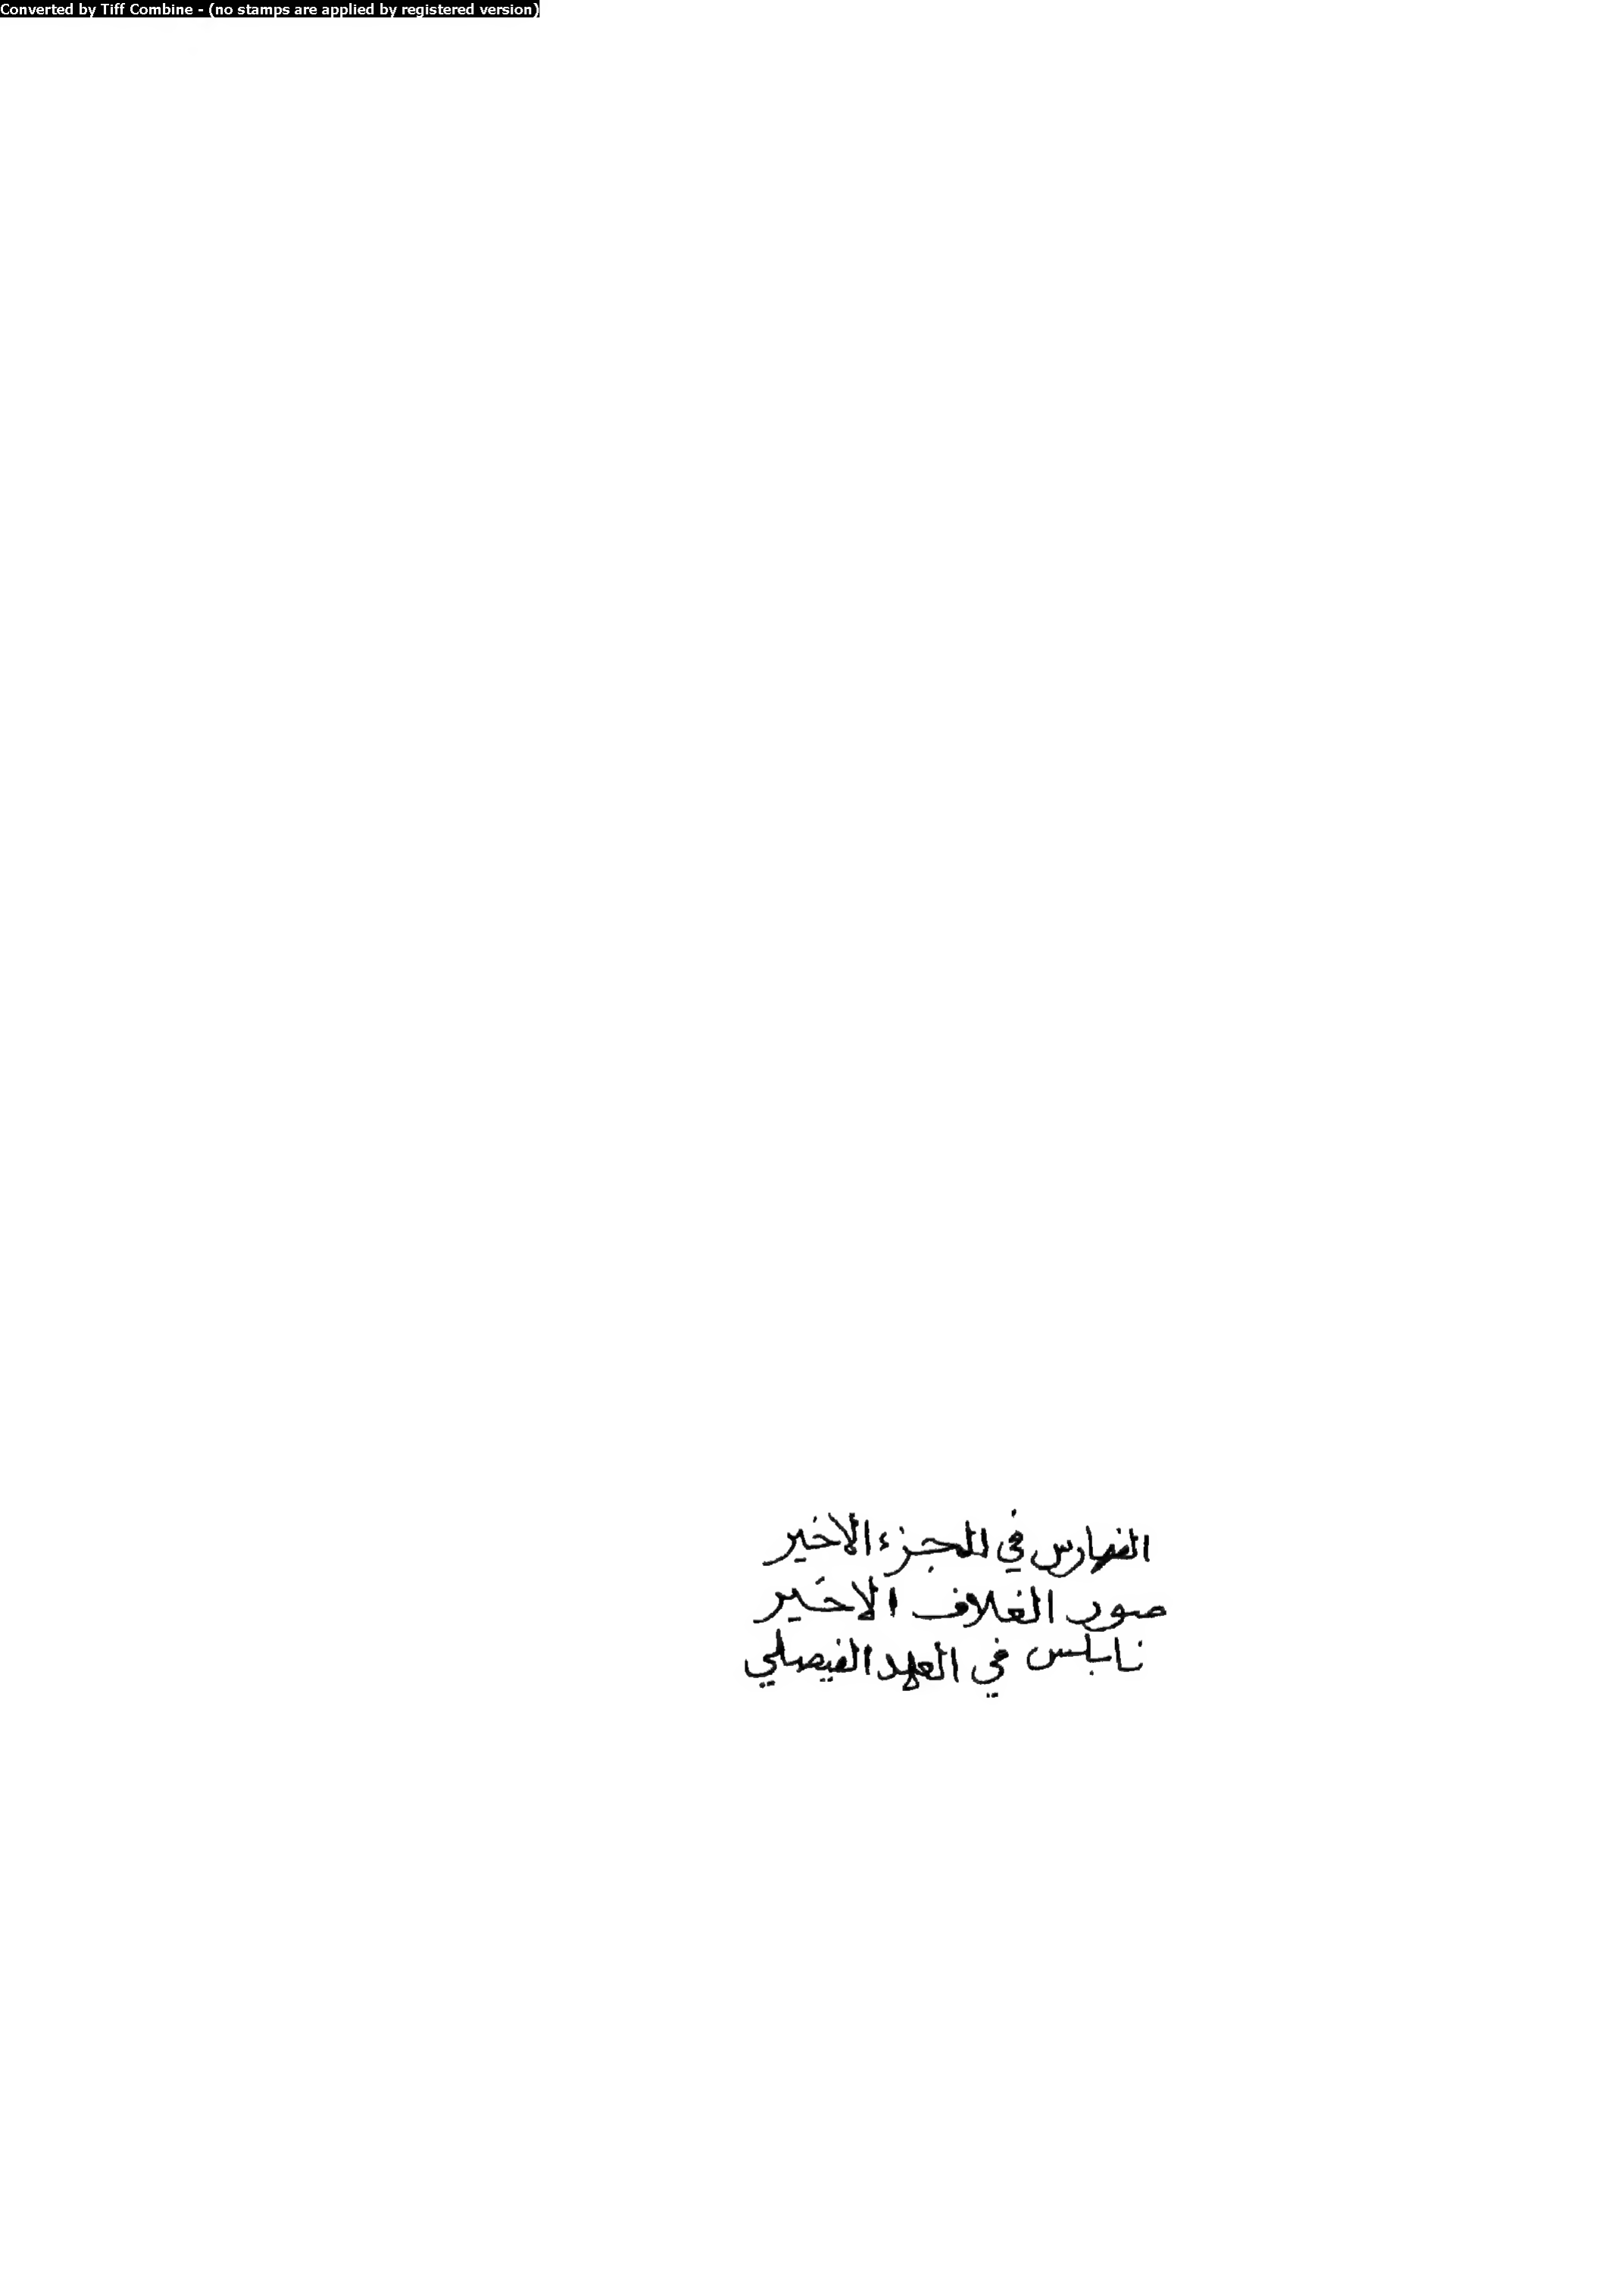 Converted by Tiff Combine - (no stamps are applied by registered version)
الفهارس في الجزء الاخير
صور الغلاف الاخير
نابلس في العهد الفيصلي